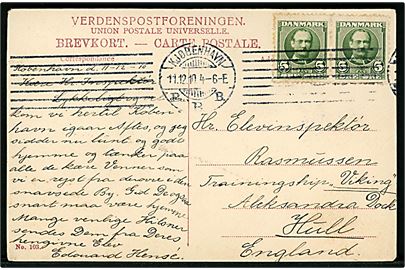 VERDENSPOSTFORENINGEN.
UNION POSTALE UNIVERSELLE.
BREVKORT. — CARTE POSTALE.
Correspondance
DANMARK
5
DANMARK
5
KJØBENHAVN
11.12.10. 4-6-E.
B.
København d. 11-12-10
Kære Hr. Inspektør
Lykkeligt og vel
kom vi hertil Køben-
havn igaar Aftes, og jeg
sidder nu lunt og godt
hjemme og tænker paa
alle de kære Venner som
vi er rejst fra derovre i den
snavsede By. Gid De
snart maa være hjemme
Mange venlige Hilsner
sendes Dem fra Deres
hengivne Elev
Edouard Hense.
Hr. Elevinspektör
Rasmussen
Trainingship "Viking"
Aleksandra Dock
Hull
England.
No. 103